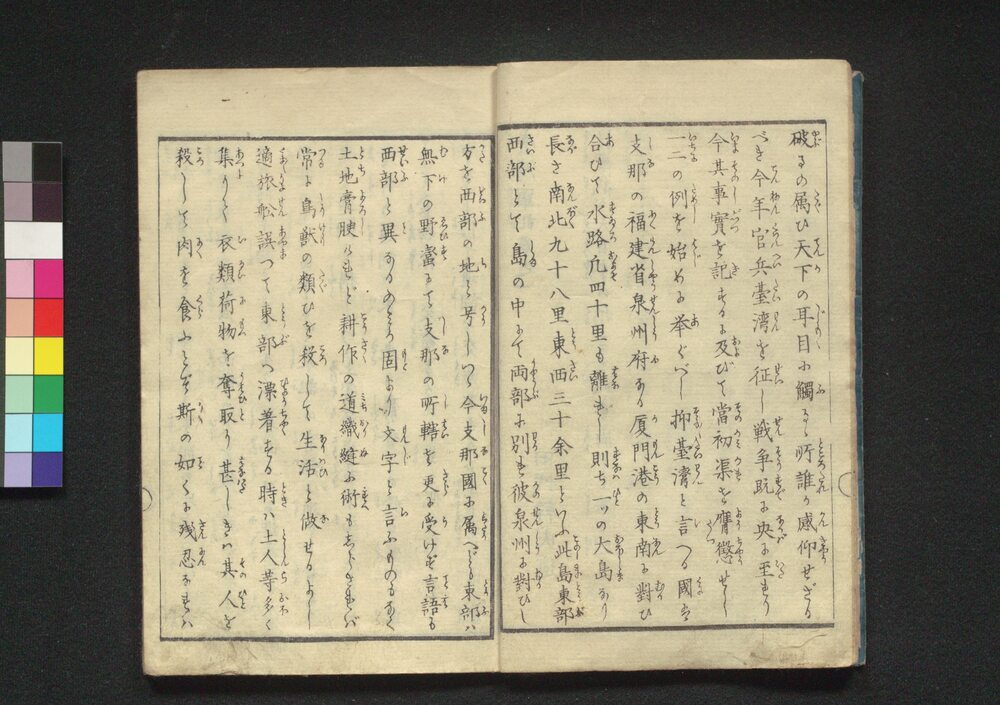 破るの属ひ天下の耳目に觸るゝ所誰か感仰せざる
べき今年官兵臺湾を征し戦争既に央に至れり
今其事實を記するに及びて當初渠を膺懲せし
一二の例を始めに挙ぐべし抑臺湾と言へる國は
支那の福建省泉州府なる厦門港の東南に對ひ
合ひて水路凡四十里も離れし則ち一ツの大島なり
長さ南北九十八里東西三十余里といふ此島東部
西部とて島の中にて両部に別れ彼泉州に對ひし
方を西部の地と号しつゝ今支那國に属へども東部ハ
無下の野蛮にて支那の所轄を更に受けず言語も
西部と異なるのみか固より文字と言ふものもなく
土地膏腴なれど耕作の道織縫の術もしらざれバ
常に鳥獣の類ひを殺して生活と做せるよし
適旅舩誤つて東部へ漂着する時ハ土人等多く
集りて衣類荷物を奪取り甚しきハ其人を
殺して肉を食ふとぞ斯の如くに残忍なれバ